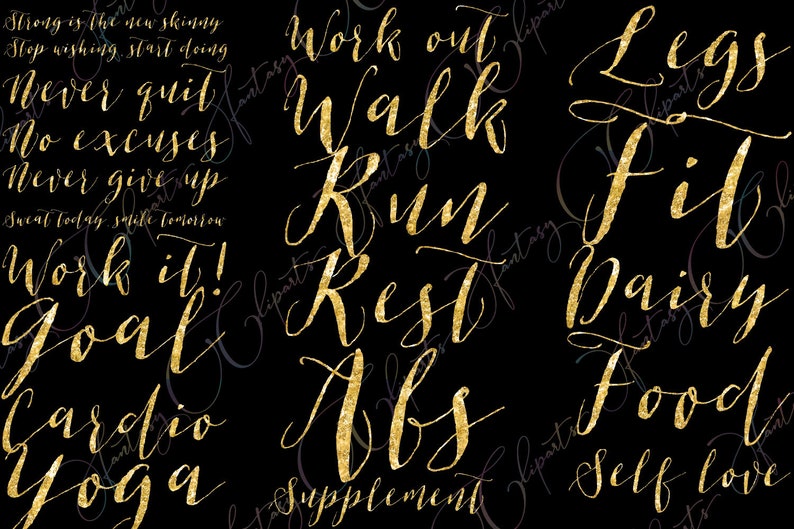 Strong is the new skinny
Stop wishing, start doing
Never quit
No excuses
Never give up
Sweat today, smile tomorrow
Work it!
Goal
Cardio
Yoga
Work out
Walk
Run
Rest
Abs
Supplement
Legs
Fit
Dairy
Food
Self love
fantasy Cliparts